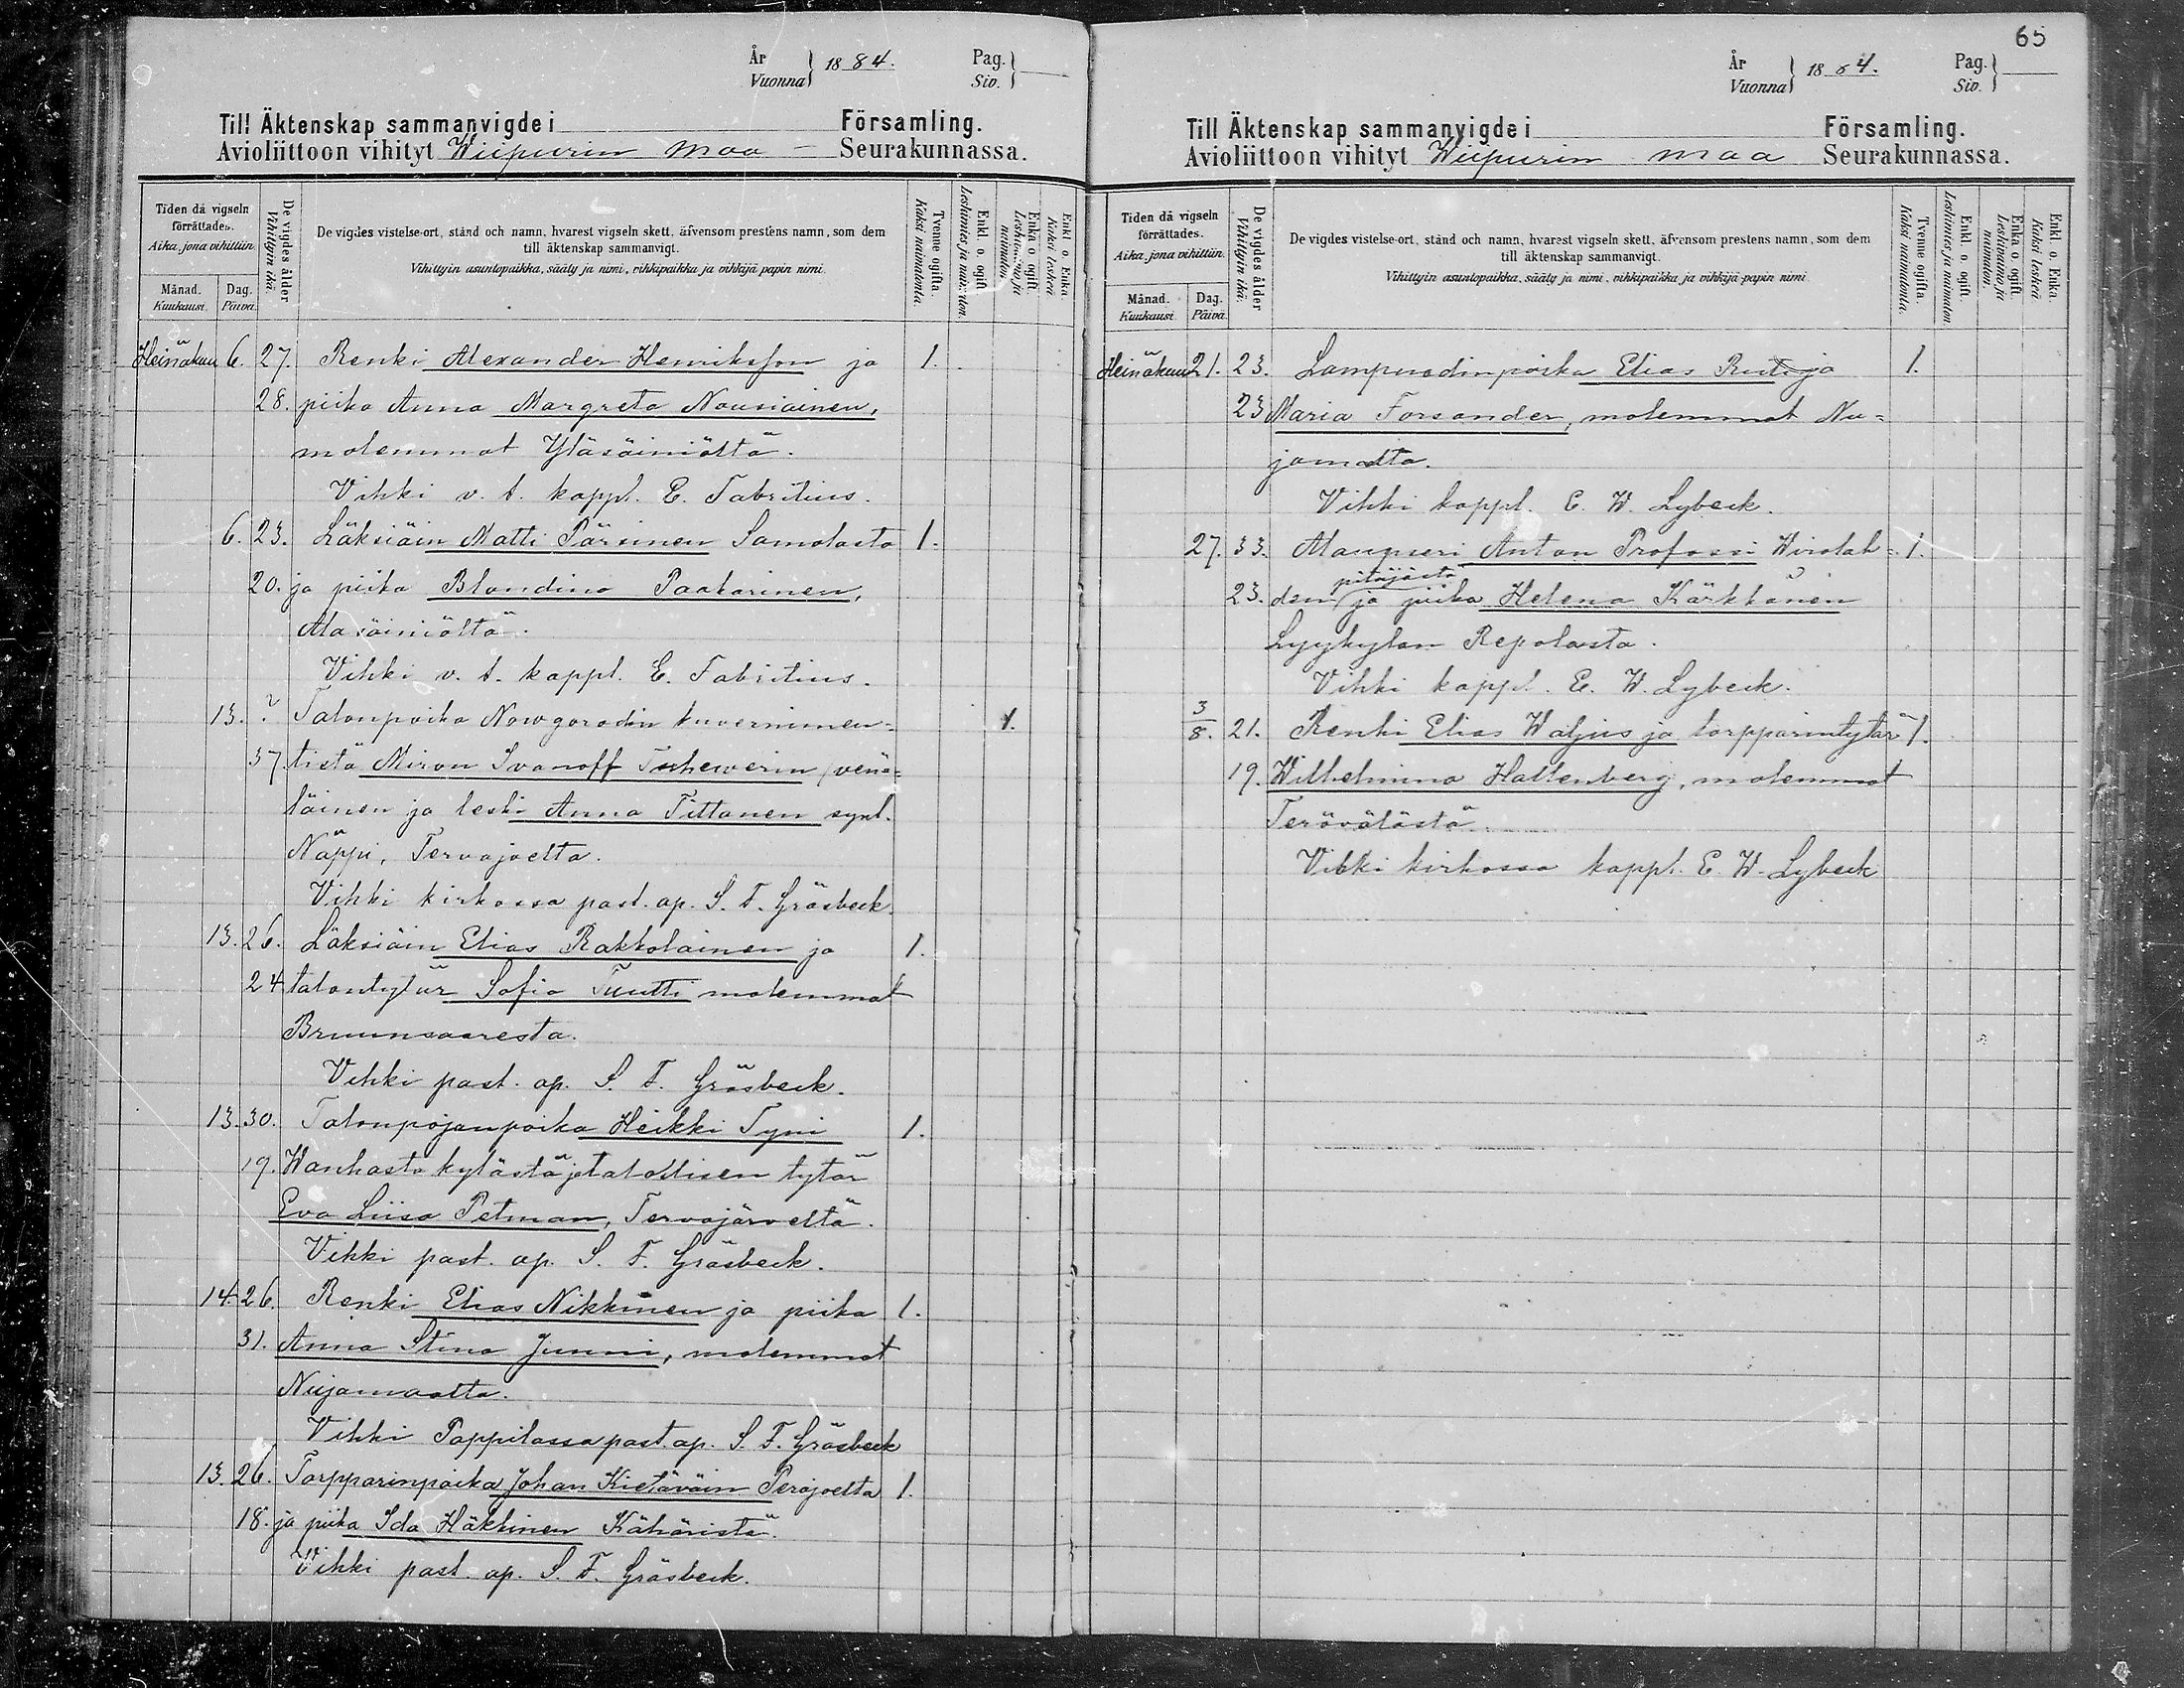 År
Vuonna 1884. Pag.
Siv.
Till Äktenskap sammanvigde i Församling.
Avioliittoon vihityt Wiipurin maa Seurakunnassa.
Tiden då vigseln förrättades.
Aika, jona vihittiin.
Månad.
Kuukausi.
Dag.
Päivä.
De vigdes ålder
Vihittyin ikä.
De vigdes vistelse-ort, stånd och namn, hvarest vigseln skett, äfvensom prestens namn, som dem
till äktenskap sammanvigt.
Vihittyin asuntopaikka, sääty ja nimi, vihkipaikka ja vihkijä-papin nimi.
Tvenne ogifta.
Kaksi naimatonta.
Enkl. o. ogift.
Leskimies ja naimaton.
Enka o. ogift.
Leskivaimo ja naimaton.
Enkl. o. Enka.
Kaksi leskeä
Heinäkuu 6. 27. Renki Alexander Henriksson ja 1.
28. piika Anna Margreta Nousiainen,
molemmat Yläsäiniöltä.
Vihki v. t. kappl. E. Fabritius.
6. 23. Läksiäin Matti Pärsinen Samolasta 1.
20. ja piika Blandina Paakarinen,
Alasäiniöltä.
Vihki v. t. kappl. E. Fabritius.
13. ? Talonpoika Nowgorodin kuvernimen=
37. tistä Miron Ivanoff Tschewerin (venä= 1.
läinen ja leski Anna Tittanen synt.
Näppi, Tervajoelta.
Vihki kirkossa past. ap. S. F. Gräsbeck.
13. 26. Läksiäin Elias Rakkolainen ja 1.
24. talontytär Sofia Tuutti molemmat
Bruunsaaresta.
Vihki past. ap. S. F. Gräsbeck.
13. 30. Talonpojanpoika Heikki Tyni 1.
19. Wanhasta kylästä ja talollisen tytär
Eva Liisa Petman, Tervajärveltä.
Vihki past. ap. S. F. Gräsbeck.
14. 26. Renki Elias Nikkinen ja piika 1.
31. Anna Stina Junni, molemmat
Nuijamaalta.
Vihki Pappilassa past. ap. S. F. Gräsbeck
13. 26. Torpparinpoika Johan Kietäväin Perojoelta 1.
18. ja piika Ida Häkkinen Kähäristä.
Vihki past. ap. S. F. Gräsbeck.
65
År
Vuonna 1884. Pag.
Siv.
Till Äktenskap sammanvigde i Församling.
Avioliittoon vihityt Wiipurin maa Seurakunnassa.
Tiden då vigseln förrättades.
Aika, jona vihittiin.
Månad.
Kuukausi.
Dag.
Päivä.
De vigdes ålder
Vihittyin ikä.
De vigdes vistelse-ort, stånd och namn, hvarest vigseln skett, äfvensom prestens namn, som dem
till äktenskap sammanvigt.
Vihittyin asuntopaikka, sääty ja nimi, vihkipaikka ja vihkijä-papin nimi.
Tvenne ogifta.
Kaksi naimatonta.
Enkl. o. ogift.
Leskimies ja naimaton.
Enka o. ogift.
Leskivaimo ja naimaton.
Enkl. o. Enka.
Kaksi leskeä
Heinäkuu 21. 23. Lampuodinpoika Elias Ruti ja 1.
23 Maria Forsander, molemmat Nu=
jamalta.
Vihki kappl. E. W. Lybeck.
27. 33. Alaupseri Anton Profossi Wirolah= 1.
pitäjästä
23. den ja piika Helena Kärkkänen
Lyykylän Repolasta.
Vihki kappl. E. W. Lybeck.
3/8. 21. Renki Elias Waljus ja torpparintytär 1.
19. Wilhelmina Hallenberg, molemmat
Terävälästä.
Vihki kirkossa kappl. E. W. Lybeck